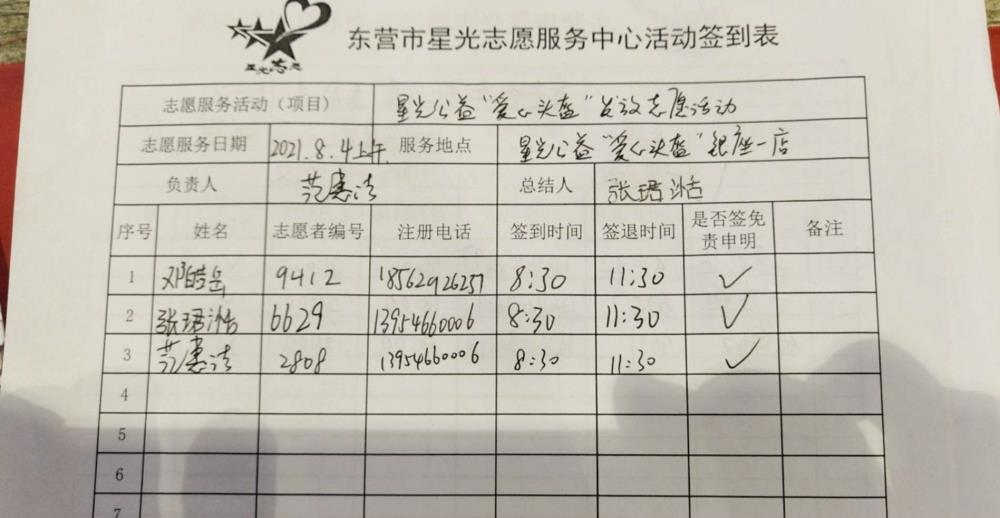 星光志愿
东营市星光志愿服务中心活动签到表
志愿服务活动（项目） 星光公益“爱心头盔”发放志愿活动
志愿服务日期 2021.8.4上午 服务地点 星光公益“爱心头盔”银座一店
负责人 范惠洁 总结人 张珺浩
序号 姓名 志愿者编号 注册电话 签到时间 签退时间 是否签免责申明 备注
1 邓皓岳 9412 18562926257 8:30 11:30 ✓
2 张珺浩 6629 13954660006 8:30 11:30 ✓
3 范惠洁 2808 13954660006 8:30 11:30 ✓
4
5
6
7